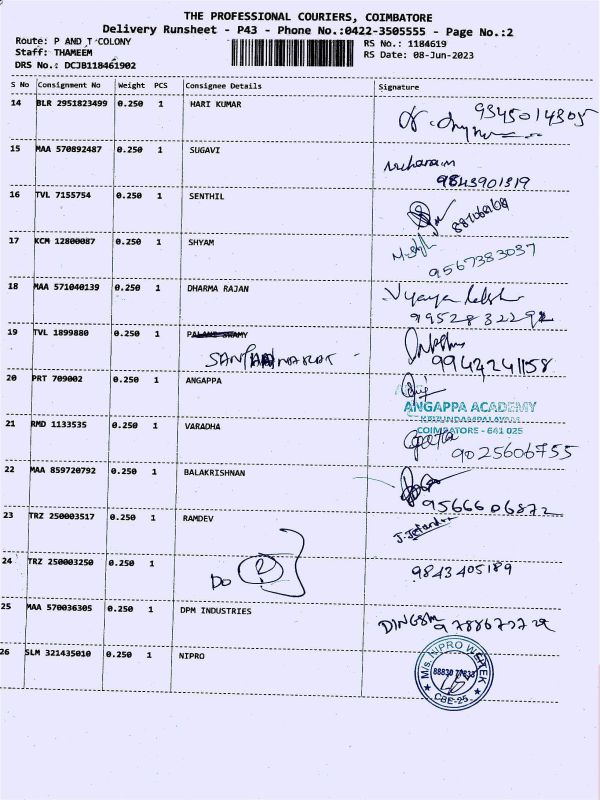 THE PROFESSIONAL COURIERS, COIMBATORE
Delivery Runsheet - P43 - Phone No.:0422-3505555 - Page No.:2
Route: P AND T COLONY
RS No.: 1184619
Staff: THAMEEM
RS Date: 08-Jun-2023
DRS No.: DCJB118461902
S No Consignment No Weight PCS Consignee Details Signature
14 BLR 2951823499 0.250 1 HARI KUMAR
9345014305
15 MAA 570892487 0.250 1 SUGAVI
9843901319
16 TVL 7155754 0.250 1 SENTHIL
17 KCM 12800087 0.250 1 SHYAM
9567383037
18 MAA 571040139 0.250 1 DHARMA RAJAN
9952832292
19 TVL 1899880 0.250 1
9944241158
20 PRT 709002 0.250 1 ANGAPPA
ANGAPPA ACADEMY
COIMBATORE - 641 025
21 RMD 1133535 0.250 1 VARADHA
Geetha
9025606755
22 MAA 859720792 0.250 1 BALAKRISHNAN
9566606872
23 TRZ 250003517 0.250 1 RAMDEV
24 TRZ 250003250 0.250 1 DO
9843405189
25 MAA 570036305 0.250 1 DPM INDUSTRIES
26 SLM 321435010 0.250 1 NIPRO
M/s. NIPRO
CBE-25